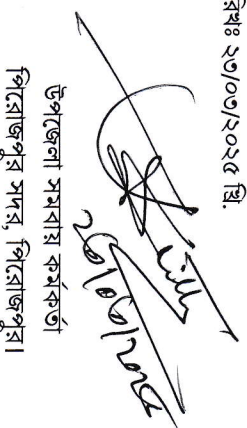 রিখঃ ২৩/০৩/২০২৫ খ্রি.
উপজেলা সমবায় কর্মকর্তা
পিরোজপুর সদর, পিরোজপুর।